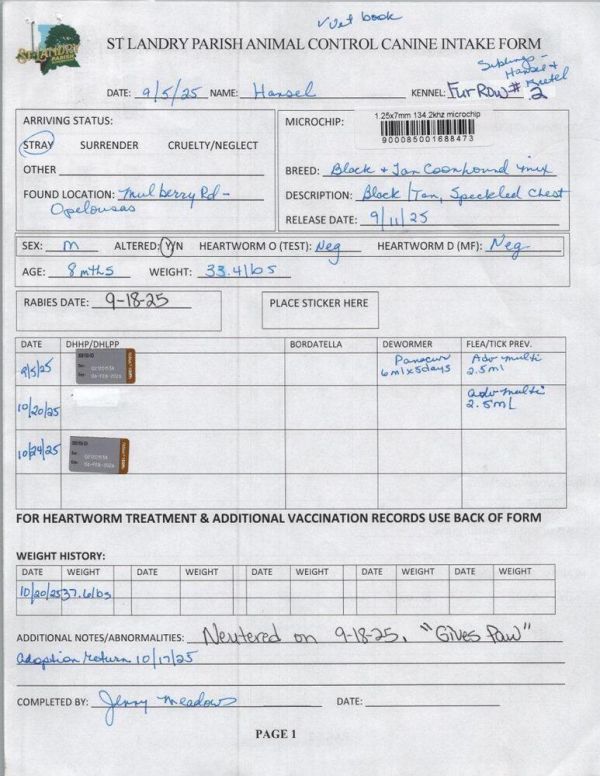 ✓ Vet book
ST LANDRY PARISH
ST LANDRY PARISH ANIMAL CONTROL CANINE INTAKE FORM
Siblings - Hansel & Gretel
DATE: 9/5/25 NAME: Hansel KENNEL: Fur Row # 2
ARRIVING STATUS:
STRAY SURRENDER CRUELTY/NEGLECT
OTHER
FOUND LOCATION: Mulberry Rd - Opelousas
MICROCHIP: 1.25x7mm 134.2khz microchip
900085001688473
BREED: Black & Tan Coonhound mix
DESCRIPTION: Black/Tan, Speckled Chest
RELEASE DATE: 9/11/25
SEX: M ALTERED: Y/N HEARTWORM O (TEST): Neg HEARTWORM D (MF): Neg
AGE: 8 mths WEIGHT: 33.4 lbs
RABIES DATE: 9-18-25 PLACE STICKER HERE
DATE DHHP/DHLPP BORDATELLA DEWORMER FLEA/TICK PREV.
9/5/25 Panacur 6ml x 5days Adv multi 2.5ml
10/20/25 adv multi 2.5mL
10/24/25
FOR HEARTWORM TREATMENT & ADDITIONAL VACCINATION RECORDS USE BACK OF FORM
WEIGHT HISTORY:
DATE WEIGHT DATE WEIGHT DATE WEIGHT DATE WEIGHT DATE WEIGHT
10/20/25 37.6lbs
ADDITIONAL NOTES/ABNORMALITIES: Neutered on 9-18-25. "Gives Paw"
adoption return 10/17/25
COMPLETED BY: Jenny Meadows DATE:
PAGE 1